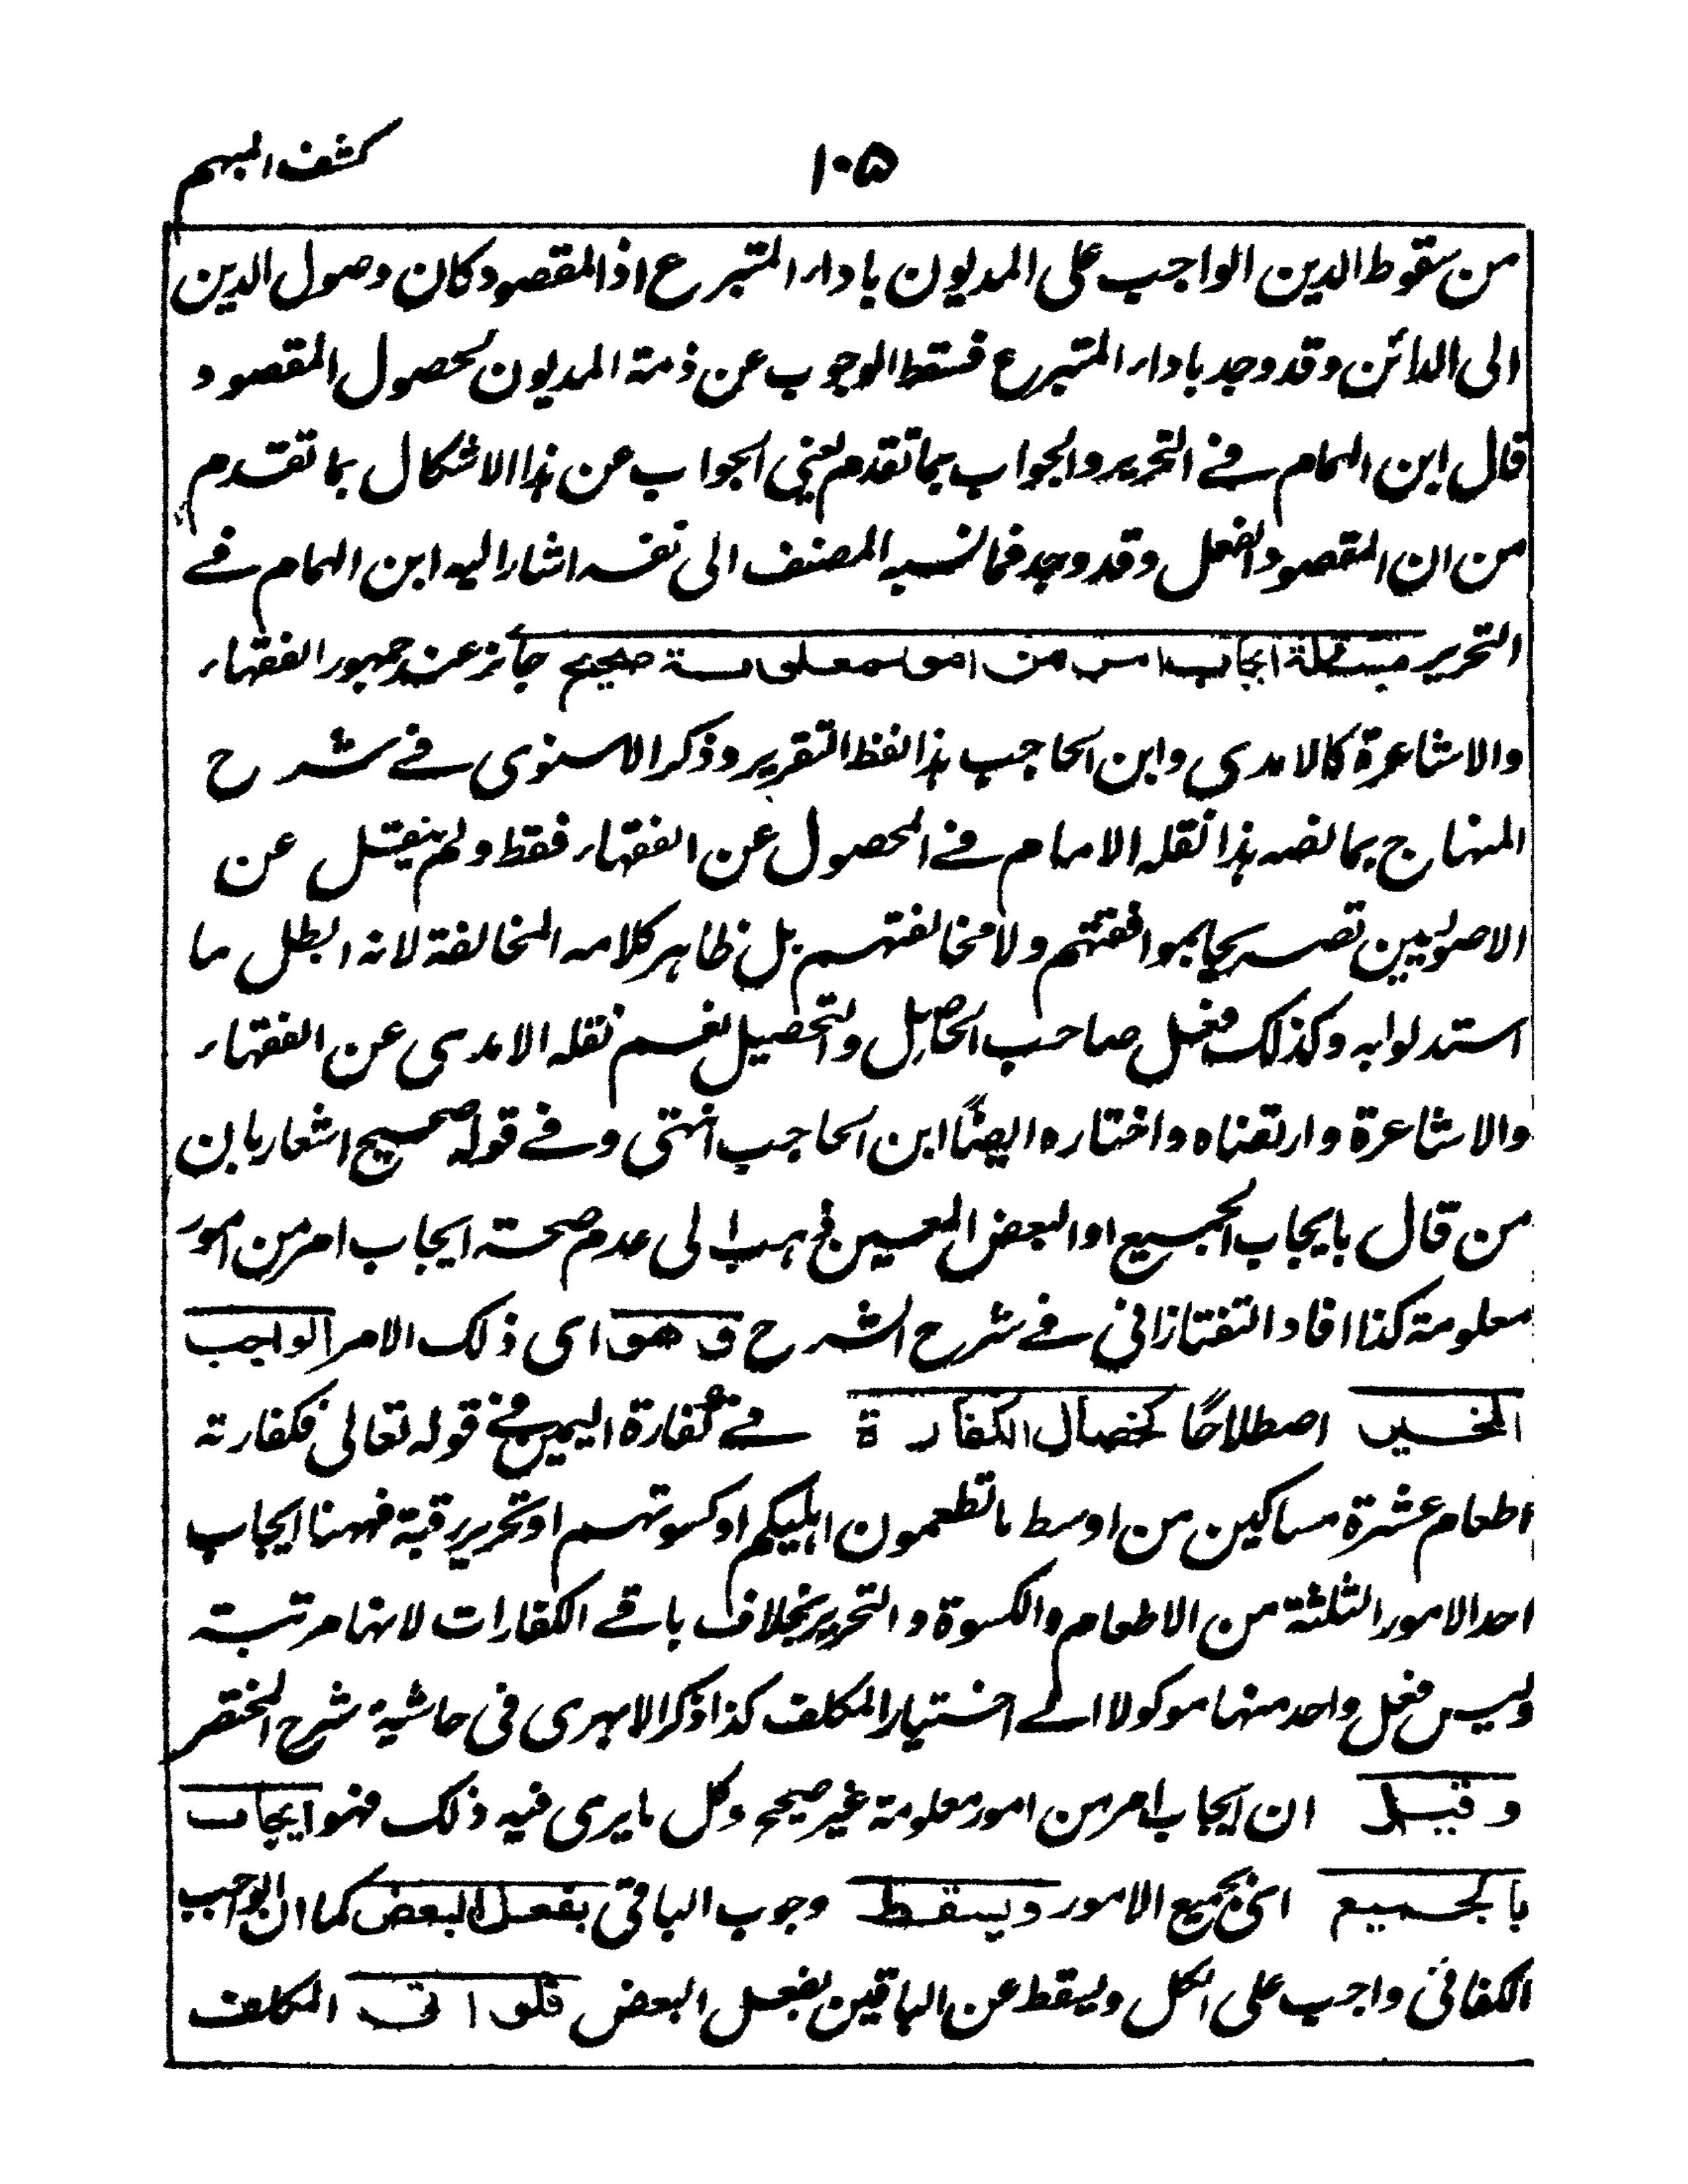 كشف المبهم
١٠٥
من سقوط الدين الواجب على المديون باداء المتبرع اذ المقصود كان وصول الدين
الى الدائن وقد وجد باداء المتبرع فسقط الوجوب عن ذمة المديون لحصول المقصود
قال ابن الهمام في التحرير والجواب بما تقدم يعني الجواب عن هذا الاشكال بما تقدم
من ان المقصود الفعل وقد وجد فما نسبه المصنف الى نفسه اشار اليه ابن الهمام في
التحرير مسئلة ايجاب امر من امور معلومة صحيح جائز عند جمهور الفقهاء
والاشاعرة كالامدى وابن الحاجب هذا لفظ التقرير وذكر الاسنوى في شرح
المنهاج بما نصه هذا نقله الامام في المحصول عن الفقهاء فقط ولم ينقل عن
الاصوليين تصريحا بموافقتهم ولا مخالفتهم بل ظاهر كلامه المخالفة لانه ابطل ما
استدلوا به وكذلك فعل صاحب الحاصل والتحصيل نعم نقله الامدى عن الفقهاء
والاشاعرة وارتضاه واختاره ايضًا ابن الحاجب انتهى وفي قوله صحيح اشعار بان
من قال بايجاب الجميع او البعض المعين ذهب الى عدم صحة ايجاب امر من امور
معلومة كذا افاد التفتازاني في شرح الشرح و هو اى ذلك الامر الواجب
المخير اصطلاحًا كخصال الكفارة في كفارة اليمين في قوله تعالى فكفارته
اطعام عشرة مساكين من اوسط ما تطعمون اهليكم او كسوتهم او تحرير رقبة فههنا ايجاب
احد الامور الثلثة من الاطعام والكسوة و التحرير بخلاف باقي الكفارات لانها مرتبة
وليس فعل واحد منها موكولا الى اختيار المكلف كذا ذكر الابهرى فى حاشية شرح المختصر
و قيل ان ايجاب امر من امور معلومة غير صحيح وكل ما يرى فيه ذلك فهو ايجاب
بالجميع اى بجميع الامور ويسقط وجوب الباقي بفعل البعض كما ان الواجب
الكفائى واجب على الكل ويسقط عن الباقين بفعل البعض فلو اتى المكلف